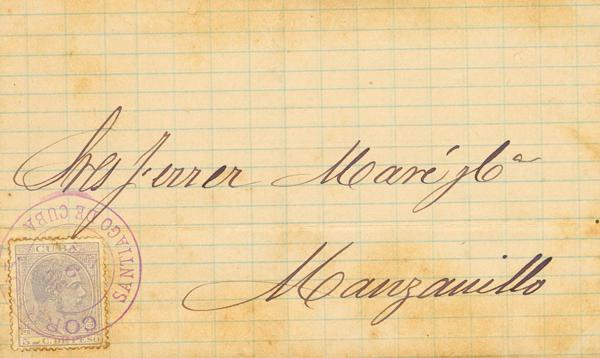 Sres Ferrer Maré y Cª
Manzanillo
SANTIAGO DE CUBA
CUBA
COR
5 C. DE PESO